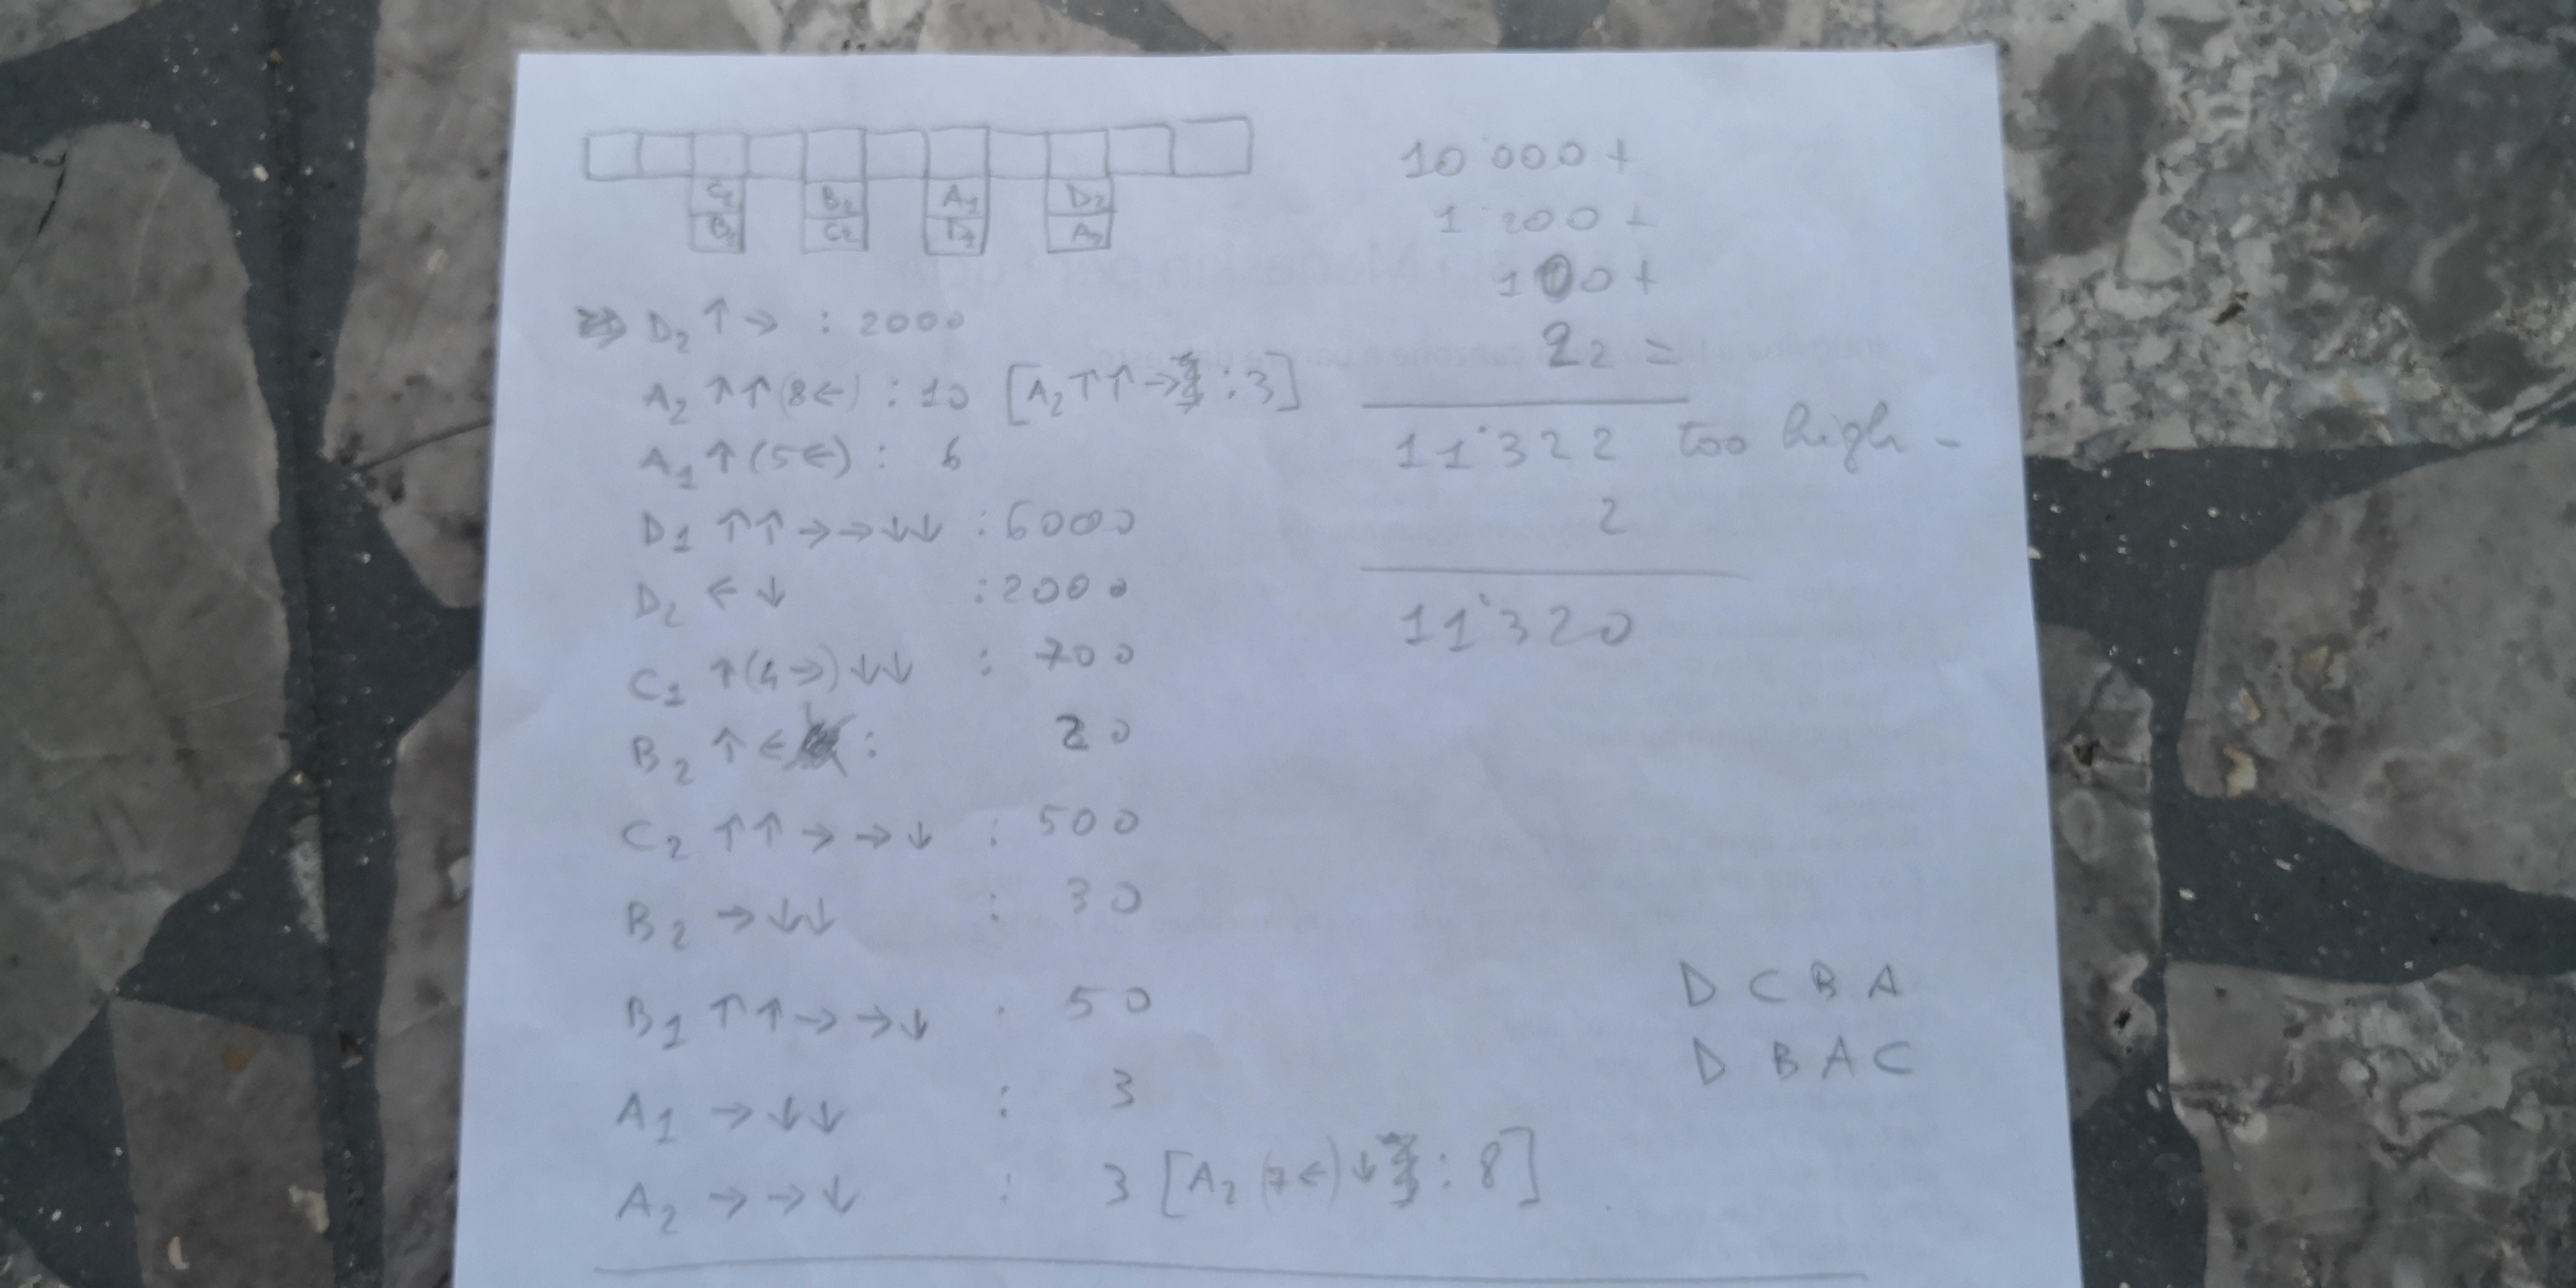 C1 B2 A1 D2
B1 C2 D1 A2
D2 ↑ → : 2000
A2 ↑↑(8←) : 10 [A2 ↑↑→ : 3]
A1 ↑(5←) : 6
D1 ↑↑→→↓↓ : 6000
D2 ← ↓ : 2000
C1 ↑(4→)↓↓ : 700
B2 ↑ ← : 20
C2 ↑↑→→↓ : 500
B2 →↓↓ : 30
B1 ↑↑→→↓ : 50
A1 →↓↓ : 3
A2 →→↓ : 3 [A2 (7←)↓ : 8]
10'000 +
1'200 +
100 +
22 =
11'322 too high -
2
11'320
D C B A
D B A C